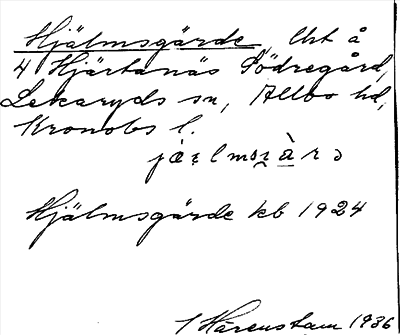 Hjälmsgärde, Urt å
4 Hjärtanäs Södregård,
Lekaryds sn, Allbo hd,
Kronobs l.
Hjälmsgärde kb 1924
Härenstam 1936